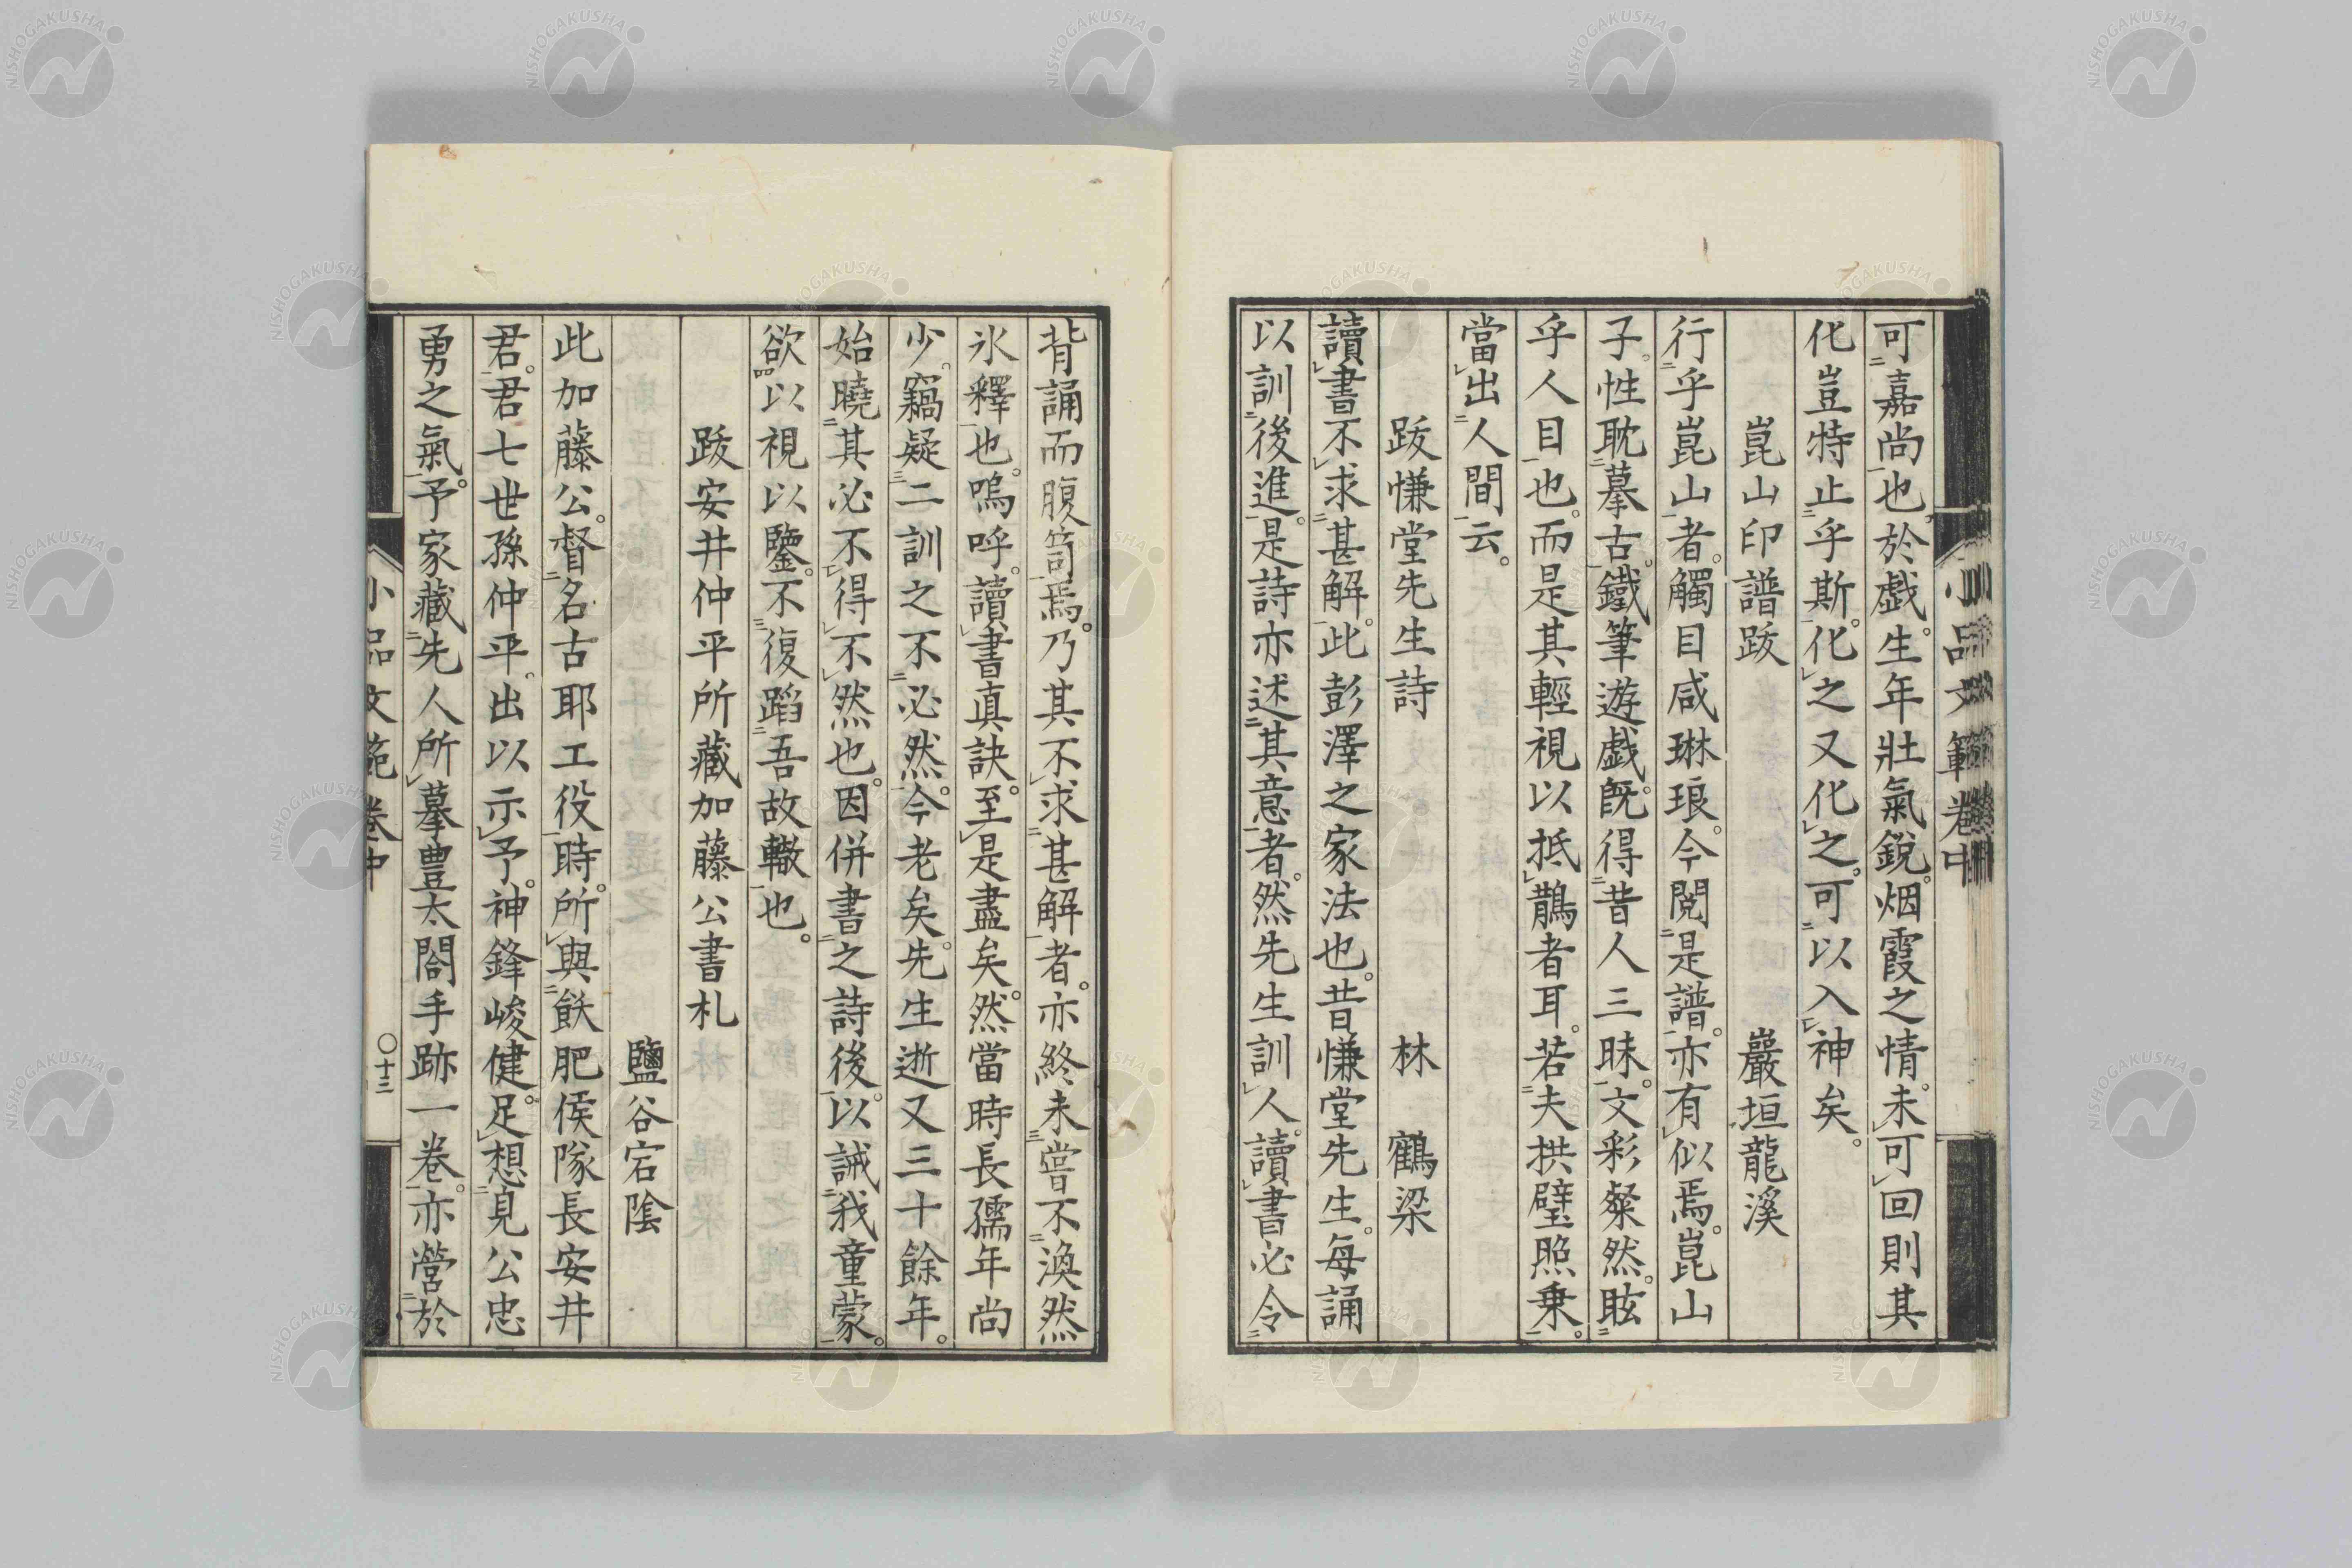 小品文範卷中
可嘉尚也於戲。生年壯氣銳。烟霞之情。未可回則其
化豈特止乎斯。化之又化之。可以入神矣。
崑山印譜跋　巖垣龍溪
行乎崑山者。觸目咸琳琅。今閱是譜。亦有似焉。崑山
子。性耽摹古。鐵筆遊戲。旣得昔人三昧。文彩粲然。眩
乎人目也。而是其輕視以抵鵲者耳。若夫拱璧照乘。
當出人間云。
跋慊堂先生詩　林　鶴梁
讀書不求甚解。此彭澤之家法也。昔慊堂先生。每誦
以訓後進。是詩亦述其意者。然先生訓人。讀書必令
背誦而腹笥焉。乃其不求甚解者。亦終未嘗不渙然
氷釋也。嗚呼。讀書眞訣。至是盡矣。然當時長孺年尚
少。竊疑二訓之不必然。今老矣。先生逝又三十餘年。
始曉其必不得不然也。因併書之詩後。以誡我童蒙。
欲以視以鑒。不復蹈吾故轍也。
跋安井仲平所藏加藤公書札
鹽谷宕陰
此加藤公。督名古耶工役時。所與飫肥侯隊長安井
君。君七世孫仲平。出以示予。神鋒峻健。足想見公忠
勇之氣。予家藏先人所摹豊太閤手跡一卷。亦營於
小品文範卷中　〇十三